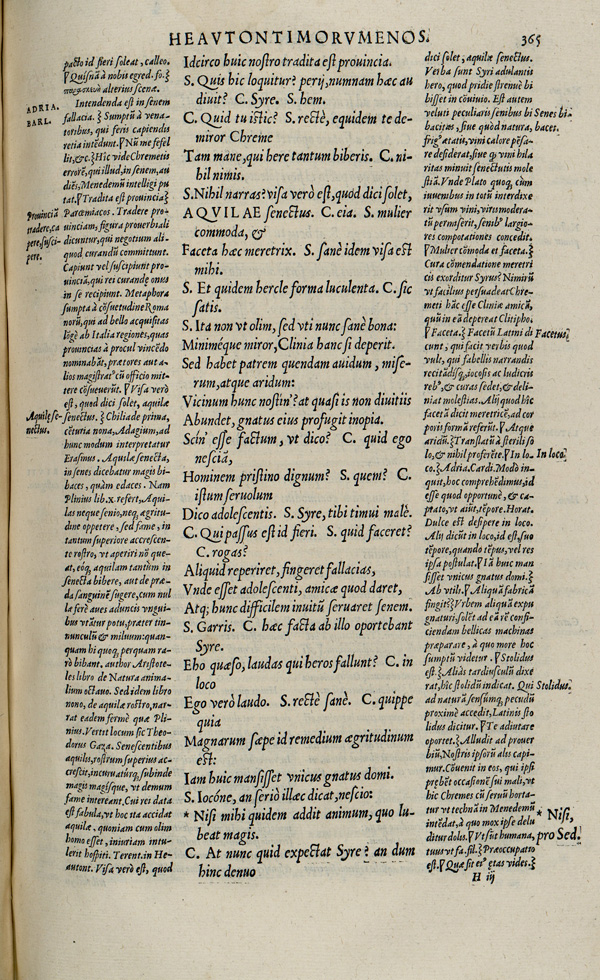 HEAVTONTIMORVMENOS.
365
pacto id fieri soleat, calleo.
alterius scenæ.
Intendenda est in senem
fallacia.
toribus, qui feris capiendis
errorē, qui illud, in senem, au
diēs, Menedemū intelligi pu
tat.
Parœmiacos. Tradere pro-
uinciam, figura prouerbiali
dicuntur, qui negotium ali-
quod curandū committunt.
Capiunt vel suscipiunt pro-
uinciā, qui rei curandæ onus
in se recipiunt. Metaphora
sumpta à cōsuetudine Roma
norū, qui ad bello acquisitas
lōgè ab Italia regiones, quas
prouincias à procul vincēdo
nominabāt, prætores aut a-
lios magistratᵘ cū officio mit-
tere cōsueuerūt.
est, quod dici solet, aquilæ
senectus. Chiliade prima,
cēturia nona, Adagium, ad
hunc modum interpretatur
Erasmus. Aquilæ senecta,
in senes dicebatur magis bi-
baces, quàm edaces. Nam
Plinius lib. x. refert, Aqui-
las neque senio, neq, ægritu-
dine oppetere, sed fame, in
tantum superiore accrescen-
te rostro, vt aperiri nō que-
at, eóq, aquilam tantùm in
senecta bibere, aut de præ-
da sanguinē sugere, cum nul
læ ferè aues aduncis vngui-
bus vtātur potu, præter tin-
nunculū & miluum: quan-
quam hi quoq, perquam ra-
rò bibant. author Aristote-
les libro de Natura anima-
lium octauo. Sed idem libro
nono, de aquilæ rostro, nar-
rat eadem fermè quæ Pli-
nius. Vertit locum sic Theo-
dorus Gaza. Senescentibus
aquilis, rostrum superius ac-
crescit, incuruaturq, subinde
magis magisque, vt demum
fame intereant. Cui rei data
est fabula, vt hoc ita accidat
aquilæ, quoniam cum olim
homo esset, iniuriam intu-
lerit hospiti. Terent. in He-
autont. Visa verò est, quod
ADRIA.
BARL.
Prouinciā
tradere, ca
pere, susci-
pere.
Aquilæ se-
nectus.
Idcirco huic nostro tradita est prouincia.
S. Quis hic loquitur? perij, numnam hæc au
diuit? C. Syre. S. hem.
C. Quid tu istîc? S. rectè, equidem te de-
miror Chreme
Tam mane, qui here tantum biberis. C. ni-
hil nimis.
S. Nihil narras? visa verò est, quod dici solet,
AQVILAE senectus. C. eia. S. mulier
commoda, &
Faceta hæc meretrix. S. sanè idem visa est
mihi.
S. Et quidem hercle forma luculenta. C. sic
satis.
S. Ita non vt olim, sed vti nunc sanè bona:
Miniméque miror, Clinia hanc si deperit.
Sed habet patrem quendam auidum, mise-
rum, atque aridum:
Vicinum hunc nostin'? at quasi is non diuitiis
Abundet, gnatus eius profugit inopia.
Scin' esse factum, vt dico? C. quid ego
nesciā,
Hominem pristino dignum? S. quem? C.
istum seruolum
Dico adolescentis. S. Syre, tibi timui malè.
C. Qui passus est id fieri. S. quid faceret?
C. rogas?
Aliquid reperiret, fingeret fallacias,
Vnde esset adolescenti, amicæ quod daret,
Atq; hunc difficilem inuitū seruaret senem.
S. Garris. C. hæc facta ab illo oportebant
Syre.
Eho quæso, laudas qui heros fallunt? C. in
loco
Ego verò laudo. S. rectè sanè. C. quippe
quia
Magnarum sæpe id remedium ægritudinum
est:
Iam huic mansisset vnicus gnatus domi.
S. Iocóne, an seriò illæc dicat, nescio:
* Nisi mihi quidem addit animum, quo lu-
beat magis.
C. At nunc quid expectat Syre? an dum
hinc denuo
dici solet, aquilæ senectus.
Verba sunt Syri adulantis
hero, quod pridie strenuè bi
bisset in cōuiuio. Est autem
veluti peculiaris senibus bi
bacitas, siue quòd natura,
ritas minuit senectutis mole
stiā. Vnde Plato quoq, cùm
iuuenibus in totū interdixe
rit vsum vini, viris modera-
tū permiserit, senibᵘ largio-
res compotationes concedit.
Mulier cōmoda et faceta.
Cura cōmendatione meretri
cis exorditur Syrus? Nimirū
vt facilius persuadeat Chre-
meti hāc esse Cliniæ amicā,
quū in eā depereat Clitipho.
Faceta. Facetū Latini di
cunt, qui facit verbis quod
vult, qui fabellis narrandis
niat molestias. Alij quod hîc
faceta dicit meretricē, ad cor
poris formā referūt. Atque
aridū. Translatū à sterili so
lo, & nihil proferēte. In lo
co. Adria. Cardi. Modò in-
quit, hoc comprehēdimus, id
esse quod opportunè, & ca-
ptato, vt aiūt, tēpore. Horat.
Dulce est desipere in loco.
Alij dicūt in loco, id est, suo
tēpore, quando tēpus, vel res
ipsa postulat. Iā huic man
sisset vnicus gnatus domi.
Ab vtili. Aliquā fabricā
fingit? Vrbem aliquā expu
gnaturi, solēt ad eā rē confi-
ciendam bellicas machinas
præparare, à quo more hoc
sumptū videtur. Stolidus
est. Aliàs tardiusculū dixe
rat, hîc stolidū indicat. Qui
ad naturā sensūmq, pecudū
proximè accedit, Latinis sto
lidus dicitur. Te adiutare
oportet. Alludit ad prouer
biū, Nostris ipsorū alis capi-
mur. Cōuenit in eos, qui ipsi
præbēt occasionē sui mali, vt
hîc Chremes cū seruū horta-
tur vt technā in Menedemū
intēdat, à quo mox ipse delu
ditur dolis. Vt sūt humana,
Præoccupatio
est.
H iij
Senes bi-
baces.
Facetus.
In loco
Stolidus.
* Nisi,
pro Sed.